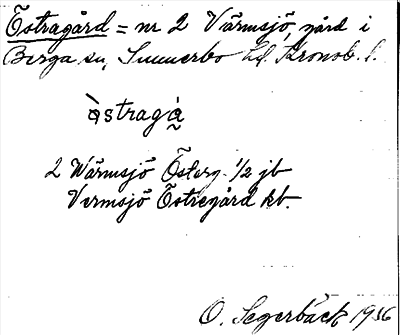 Östragård = nr 2 Värmsjö, gård i
Berga sn, Sunnerbo hd. Kronob. l.
òstragá̰
2 Wärmsjö Österg. 1/2 jb
Vermsjö Östregård kb.
O. Segerbäck 1936